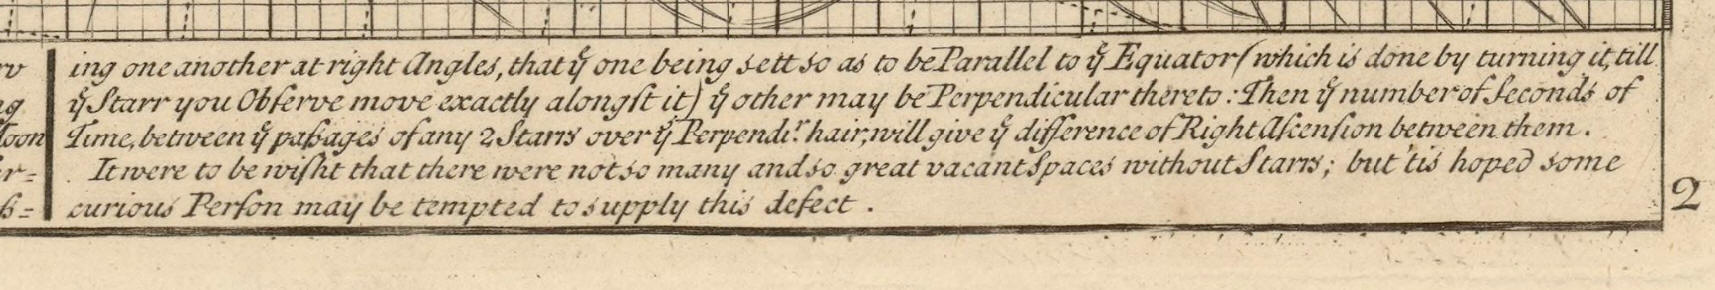 ing one another at right Angles, that yͤ one being sett so as to be Parallel to yͤ Equator (which is done by turning it, till
yͤ Starr you Obſerve move exactly alongſt it) yͤ other may be Perpendicular thereto: Then yͤ number of Seconds of
Time, between yͤ paſsages of any 2 Starrs over yͤ Perpendi.ʳ hair, will give yͤ difference of Right Aſcenſion between them.
It were to be wiſht that there were not so many and so great vacant Spaces without Starrs; but 'tis hoped some
curious Perſon may be tempted to supply this defect.
2